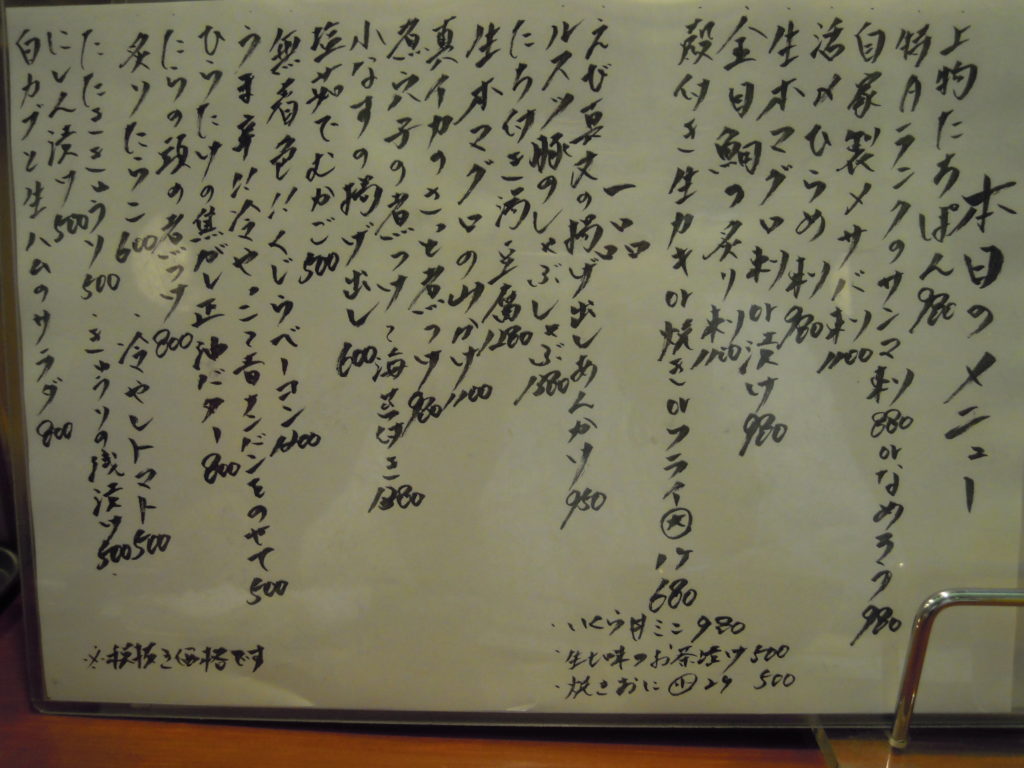 本日のメニュー
上物たちぽん 980
特Aランクのサンマ刺 880 orなめろう 980
自家製〆サバ刺 1100
活〆ひらめ刺 980
生本マグロ刺 or 漬け 980
金目鯛の炙り刺 1100
殻付き生カキ or 焼き or フライ 大 1ケ 680
一品
えび真丈の揚げ出しあんかけ 950
ルスツ豚のしゃぶしゃぶ 1380
たち付き湯豆腐 1280
生本マグロの山かけ 1100
真イカのさっと煮つけ 980
煮穴子の煮つけて海苔付き 1280
小なすの揚げ出し 600
塩茹でむかご 500
無着色!!くじらベーコン 1200
うま辛!!冷やっこて青ナンバンをのせて 500
ひらたけの焦がし正油バター 800
たらの頭の煮つけ 800
炙りたらこ 600 ・冷やしトマト 500
たたききゅうり 500 ・きゅうりの浅漬け 500
にしん漬け 500
白カブと生ハムのサラダ 800
・いくら丼ミニ 980
・生七味のお茶漬け 500
・焼きおに 小 2ケ 500
※税抜き価格です